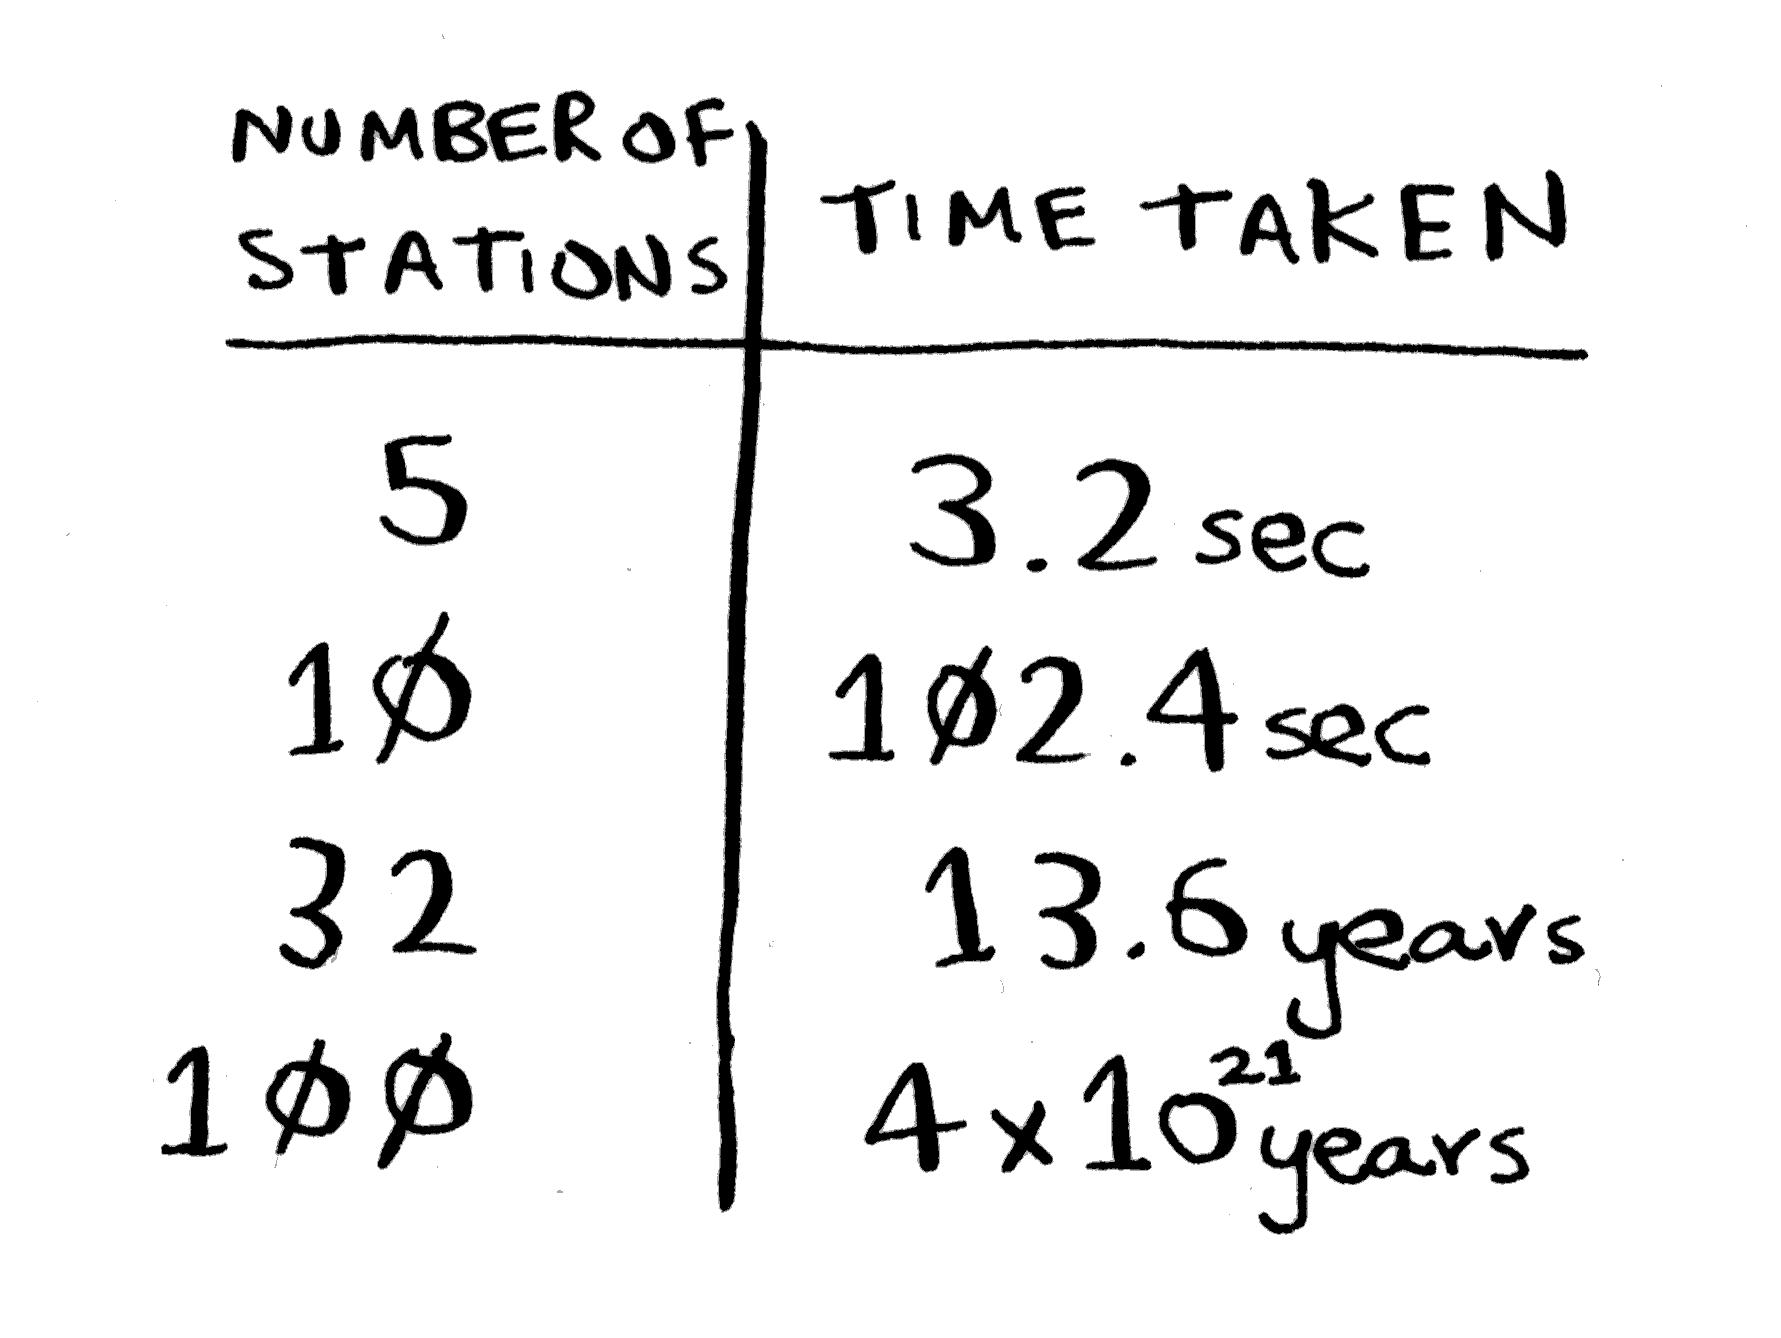 NUMBER OF
STATIONS
TIME TAKEN
5 3.2 sec
10 102.4 sec
32 13.6 years
100 4 x 10²¹ years